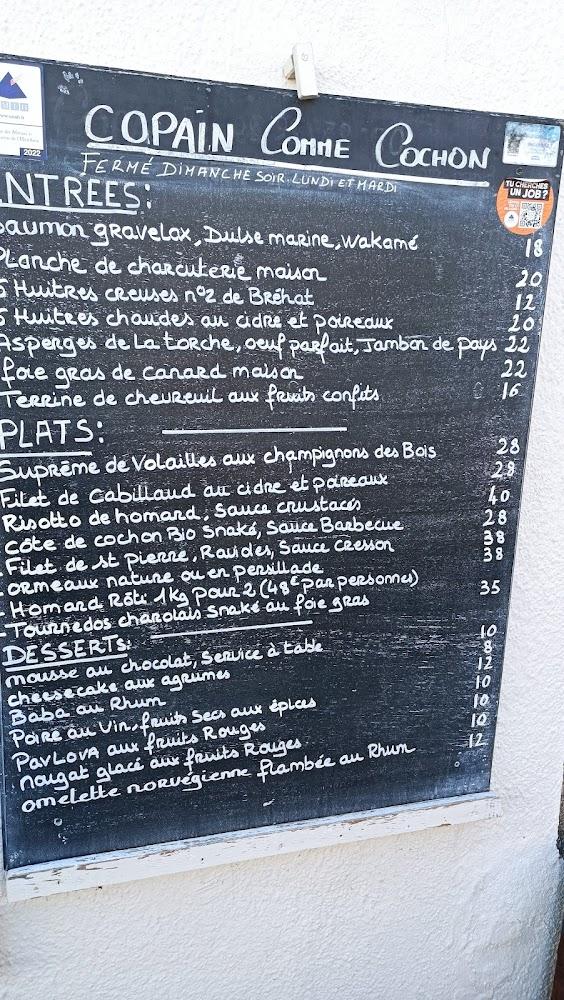 COPAIN COMME COCHON
FERMÉ DIMANCHE SOIR. LUNDI ET MARDI
2022
TU CHERCHES
UN JOB ?
NTREES:
saumon gravelax, Dulse marine, Wakamé 18
Planche de charcuterie maison 20
6 Huitres creuses n°2 de Bréhat 12
6 Huitres chaudes au cidre et poireaux 20
Asperges de La torche, oeuf parfait, Jambon de pays 22
foie gras de canard maison 22
Terrine de chevreuil aux fruits confits 16
PLATS:
Suprême de Volailles aux champignons des Bois 28
Filet de Cabillaud au cidre et poireaux 28
Risotto de homard, Sauce crustacés 40
Côte de cochon Bio Snaké, Sauce Barbecue 28
Filet de st Pierre, Ravioles, Sauce Cresson 38
ormeaux nature ou en persillade 38
- Homard Rôti 1kg pour 2 (48€ par personnes)
- Tournedos charolais snaké au foie gras 35
DESSERTS:
mousse au chocolat, Service à table 10
cheesecake aux agrumes 8
Baba au Rhum 12
Poire au Vin, fruits Secs aux épices 10
PavLova aux fruits Rouges 10
nougat glacé aux fruits Rouges 10
omelette norvégienne flambée au Rhum 12